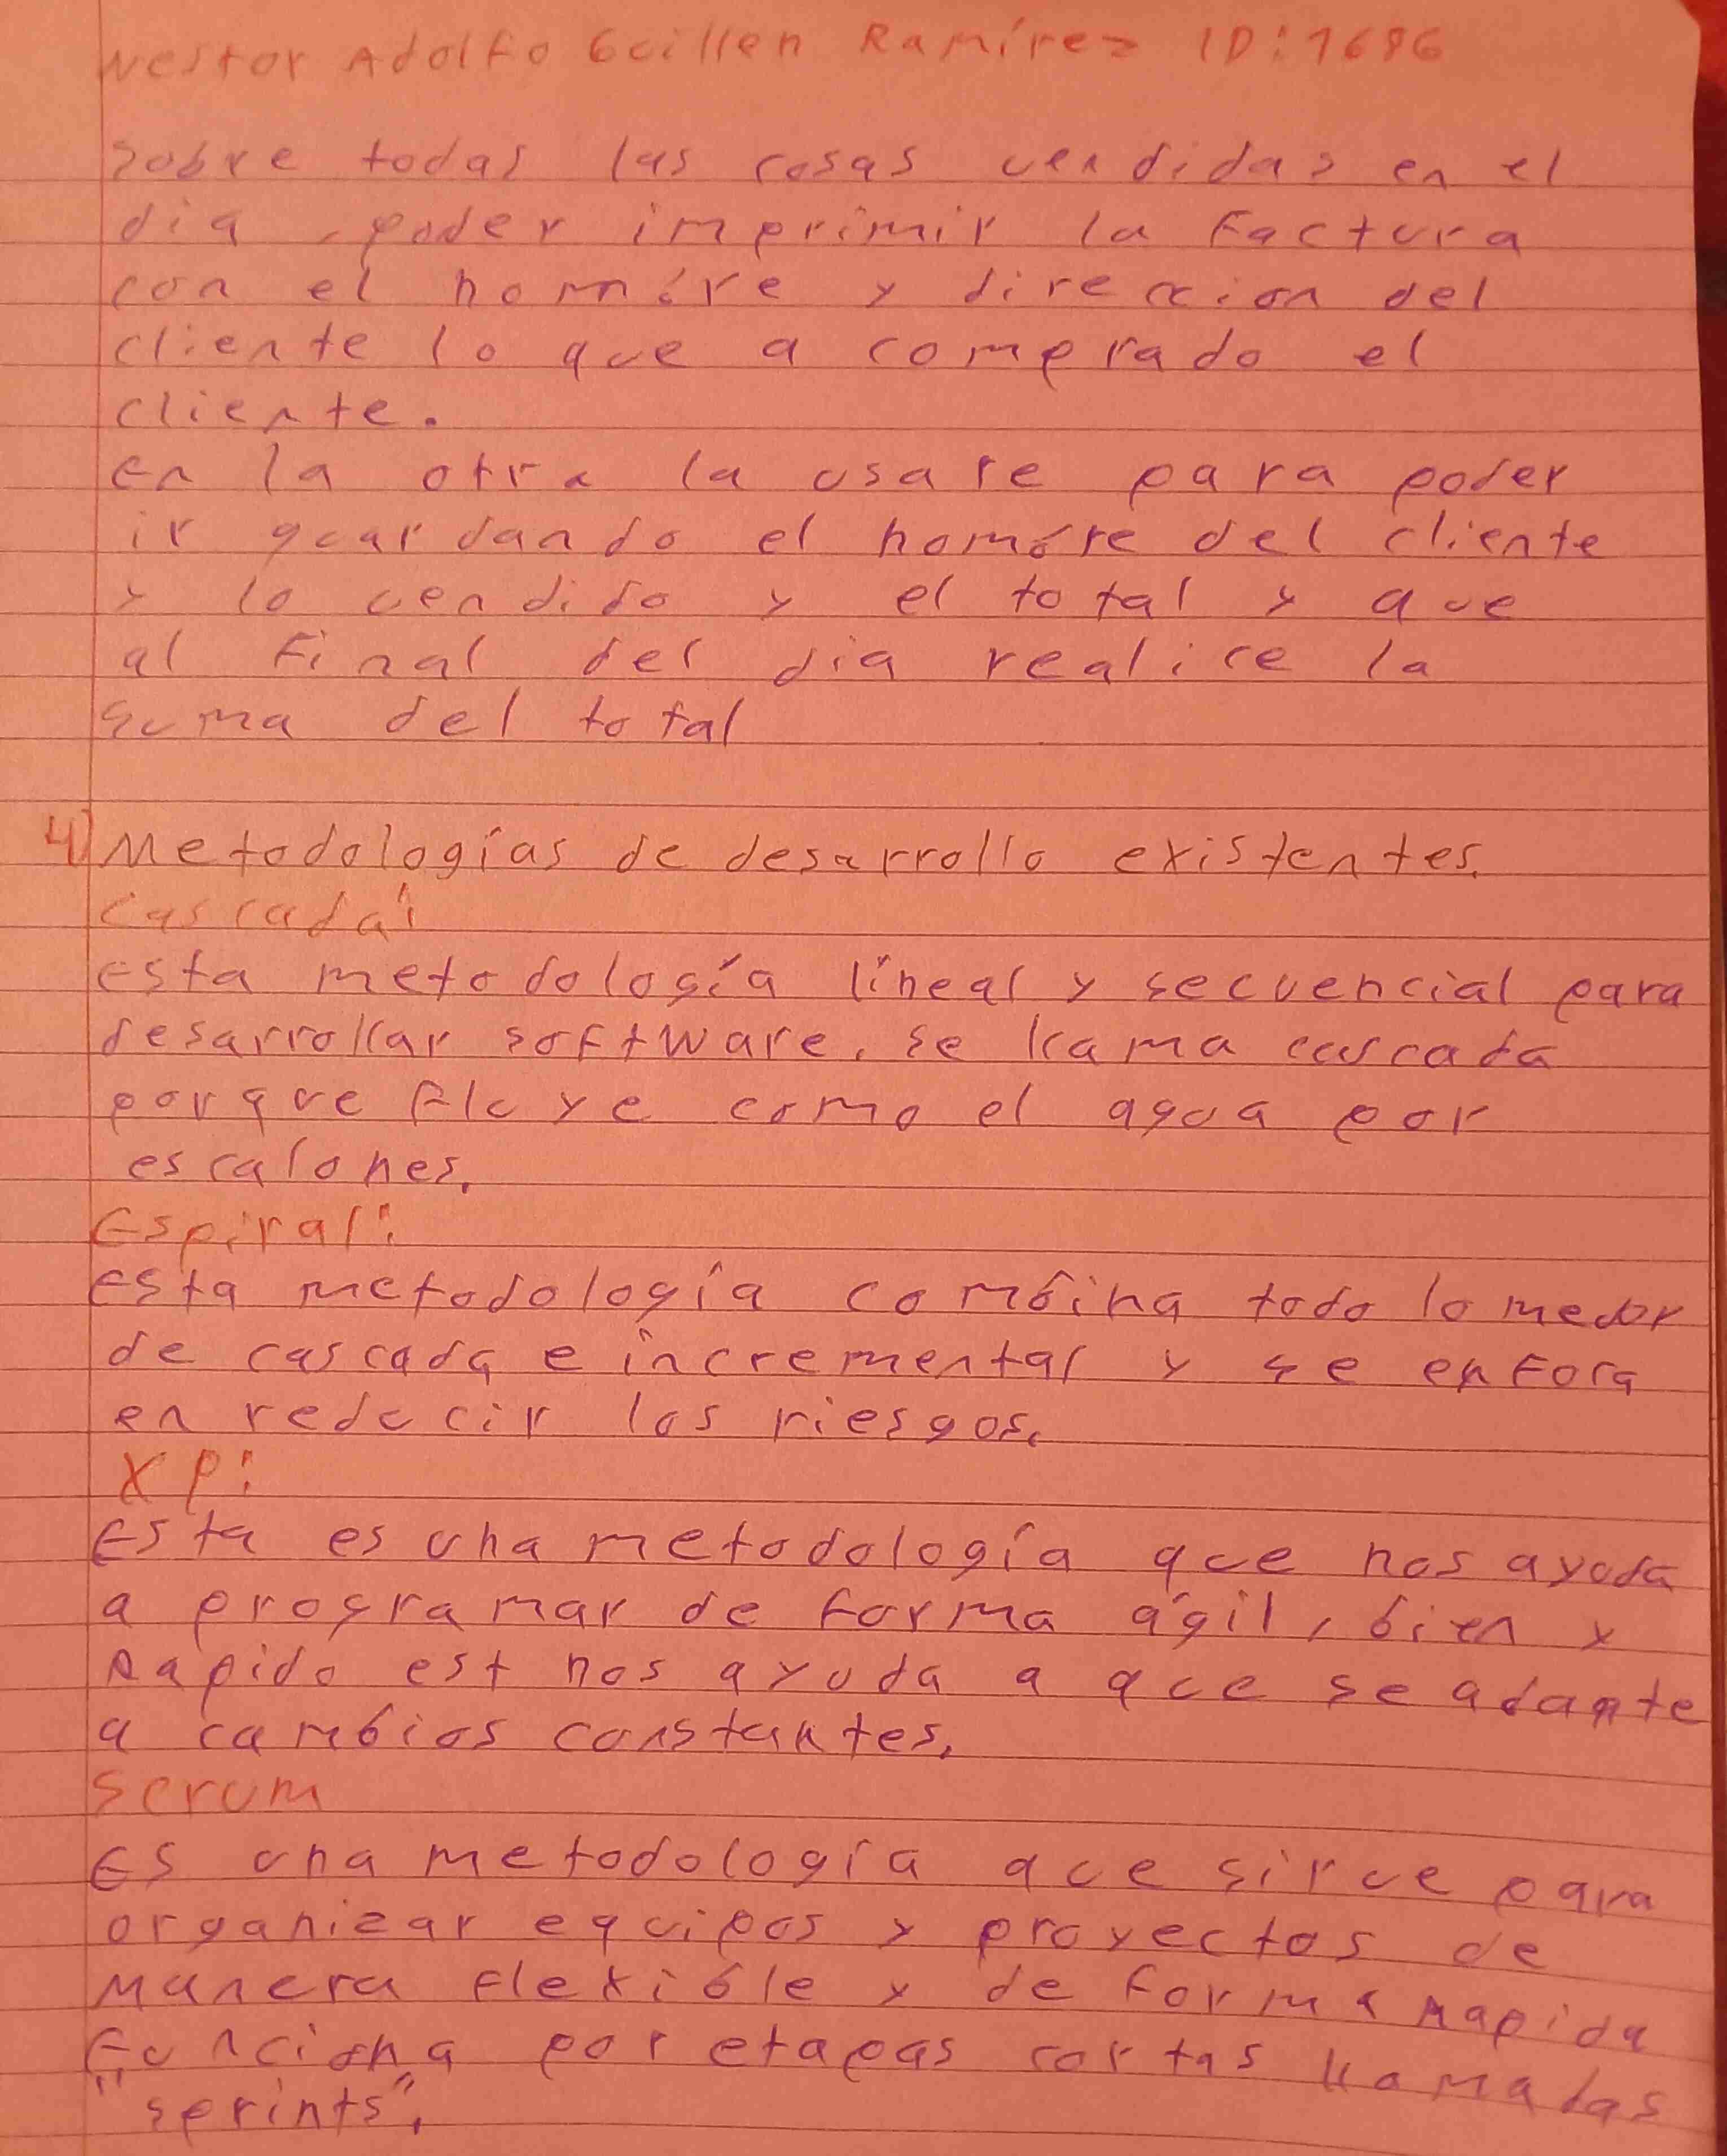 Nestor Adolfo Guillen Ramírez ID: 1696
sobre todas las cosas vendidas en el
dia, poder imprimir la Factura
con el nombre y direccion del
cliente lo que a comprado el
cliente.
en la otra la usare para poder
ir guardando el nombre del cliente
y lo vendido y el total y que
al Final del dia realice la
suma del total
4) Metodologías de desarrollo existentes.
Cascada:
esta metodología líneal y secuencial para
desarrollar software, se llama cascada
porque Fluye como el agua por
escalones.
Espiral:
esta metodología combina todo lo mejor
de cascada e incremental y se enFoca
en reducir los riesgos.
XP:
Esta es una metodología que nos ayuda
a programar de Forma ágil, bien y
Rapido est nos ayuda a que se adapte
a cambios constantes.
Scrum
Es una metodología que sirve para
organizar equipos y proyectos de
manera Flexible y de Forma Rapida
Funciona por etapas cortas llamadas
"sprints".